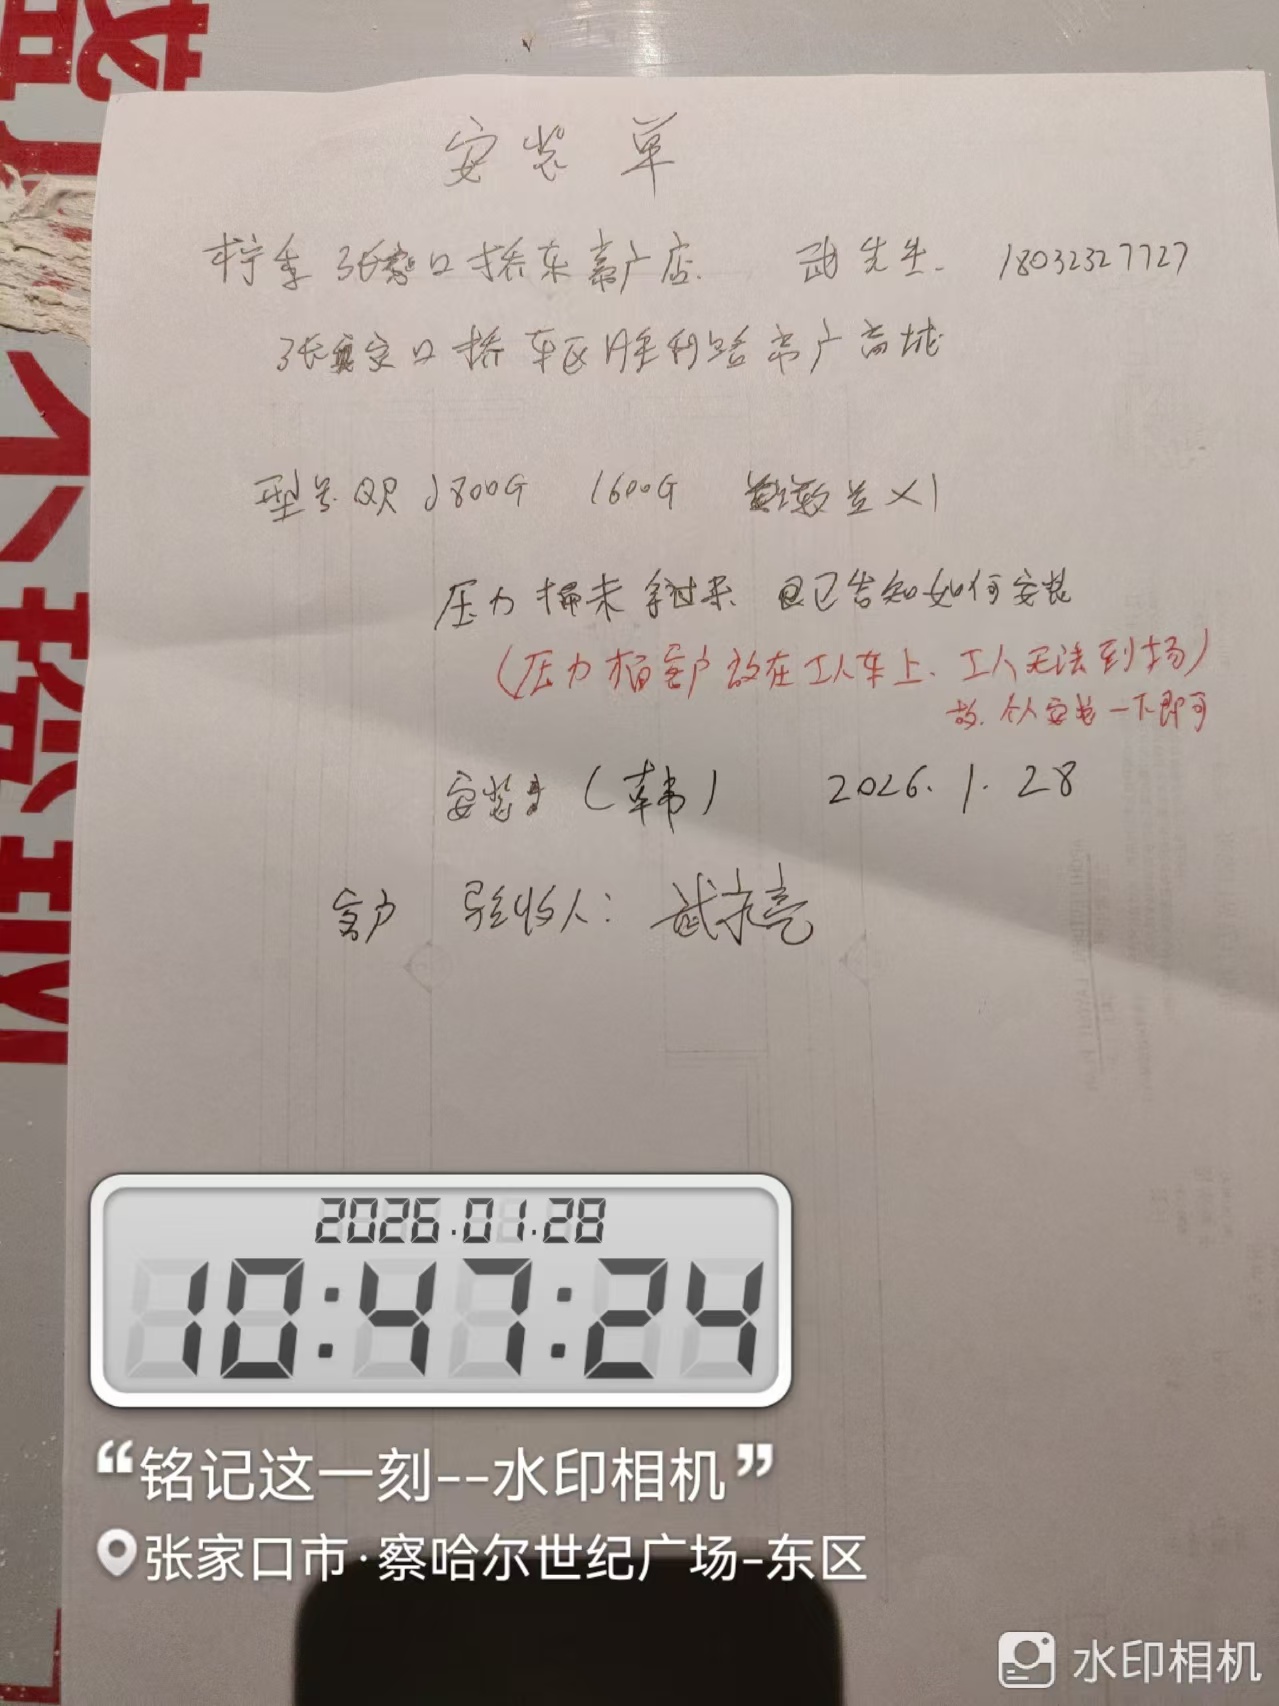 安装单
柠季张家口桥东嘉广店. 武先生. 18032327727
张家口桥东区胜利路帝广商城
型号QR J800G 1600G 数量×1
压力桶未拿过来. 且已告知如何安装
(压力桶客户放在工人车上、工人无法到场)
故.个人安装一下即可
安装 (韩) 2026.1.28
客户 验收人: 武永亮
2026.01.28
10:47:24
“铭记这一刻--水印相机”
张家口市·察哈尔世纪广场-东区
水印相机